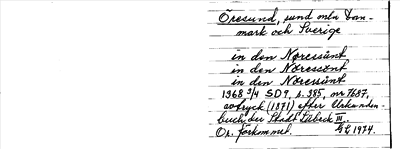 Öresund, sund mln Dan-
mark och Sverige
in den Noressunt
in den Noressont
in den Noressunt
1368 3/4 SD 9, s. 385, nr 7687,
avtryck (1871) efter Urkunden-
buch der Stadt Lübeck III.
Or. förkommet. 1974.